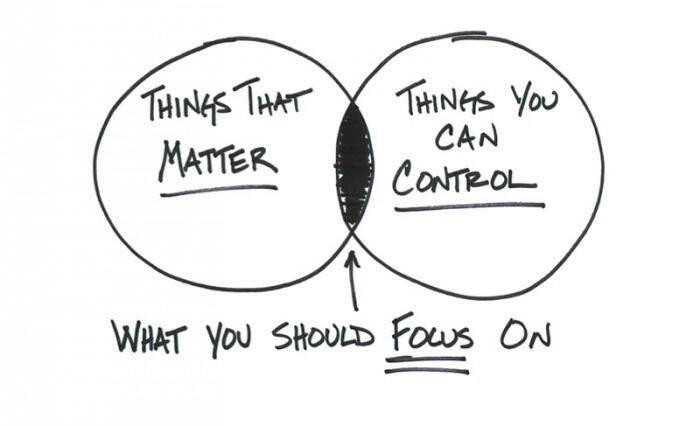 THINGS THAT
MATTER
THINGS YOU
CAN
CONTROL
WHAT YOU SHOULD FOCUS ON